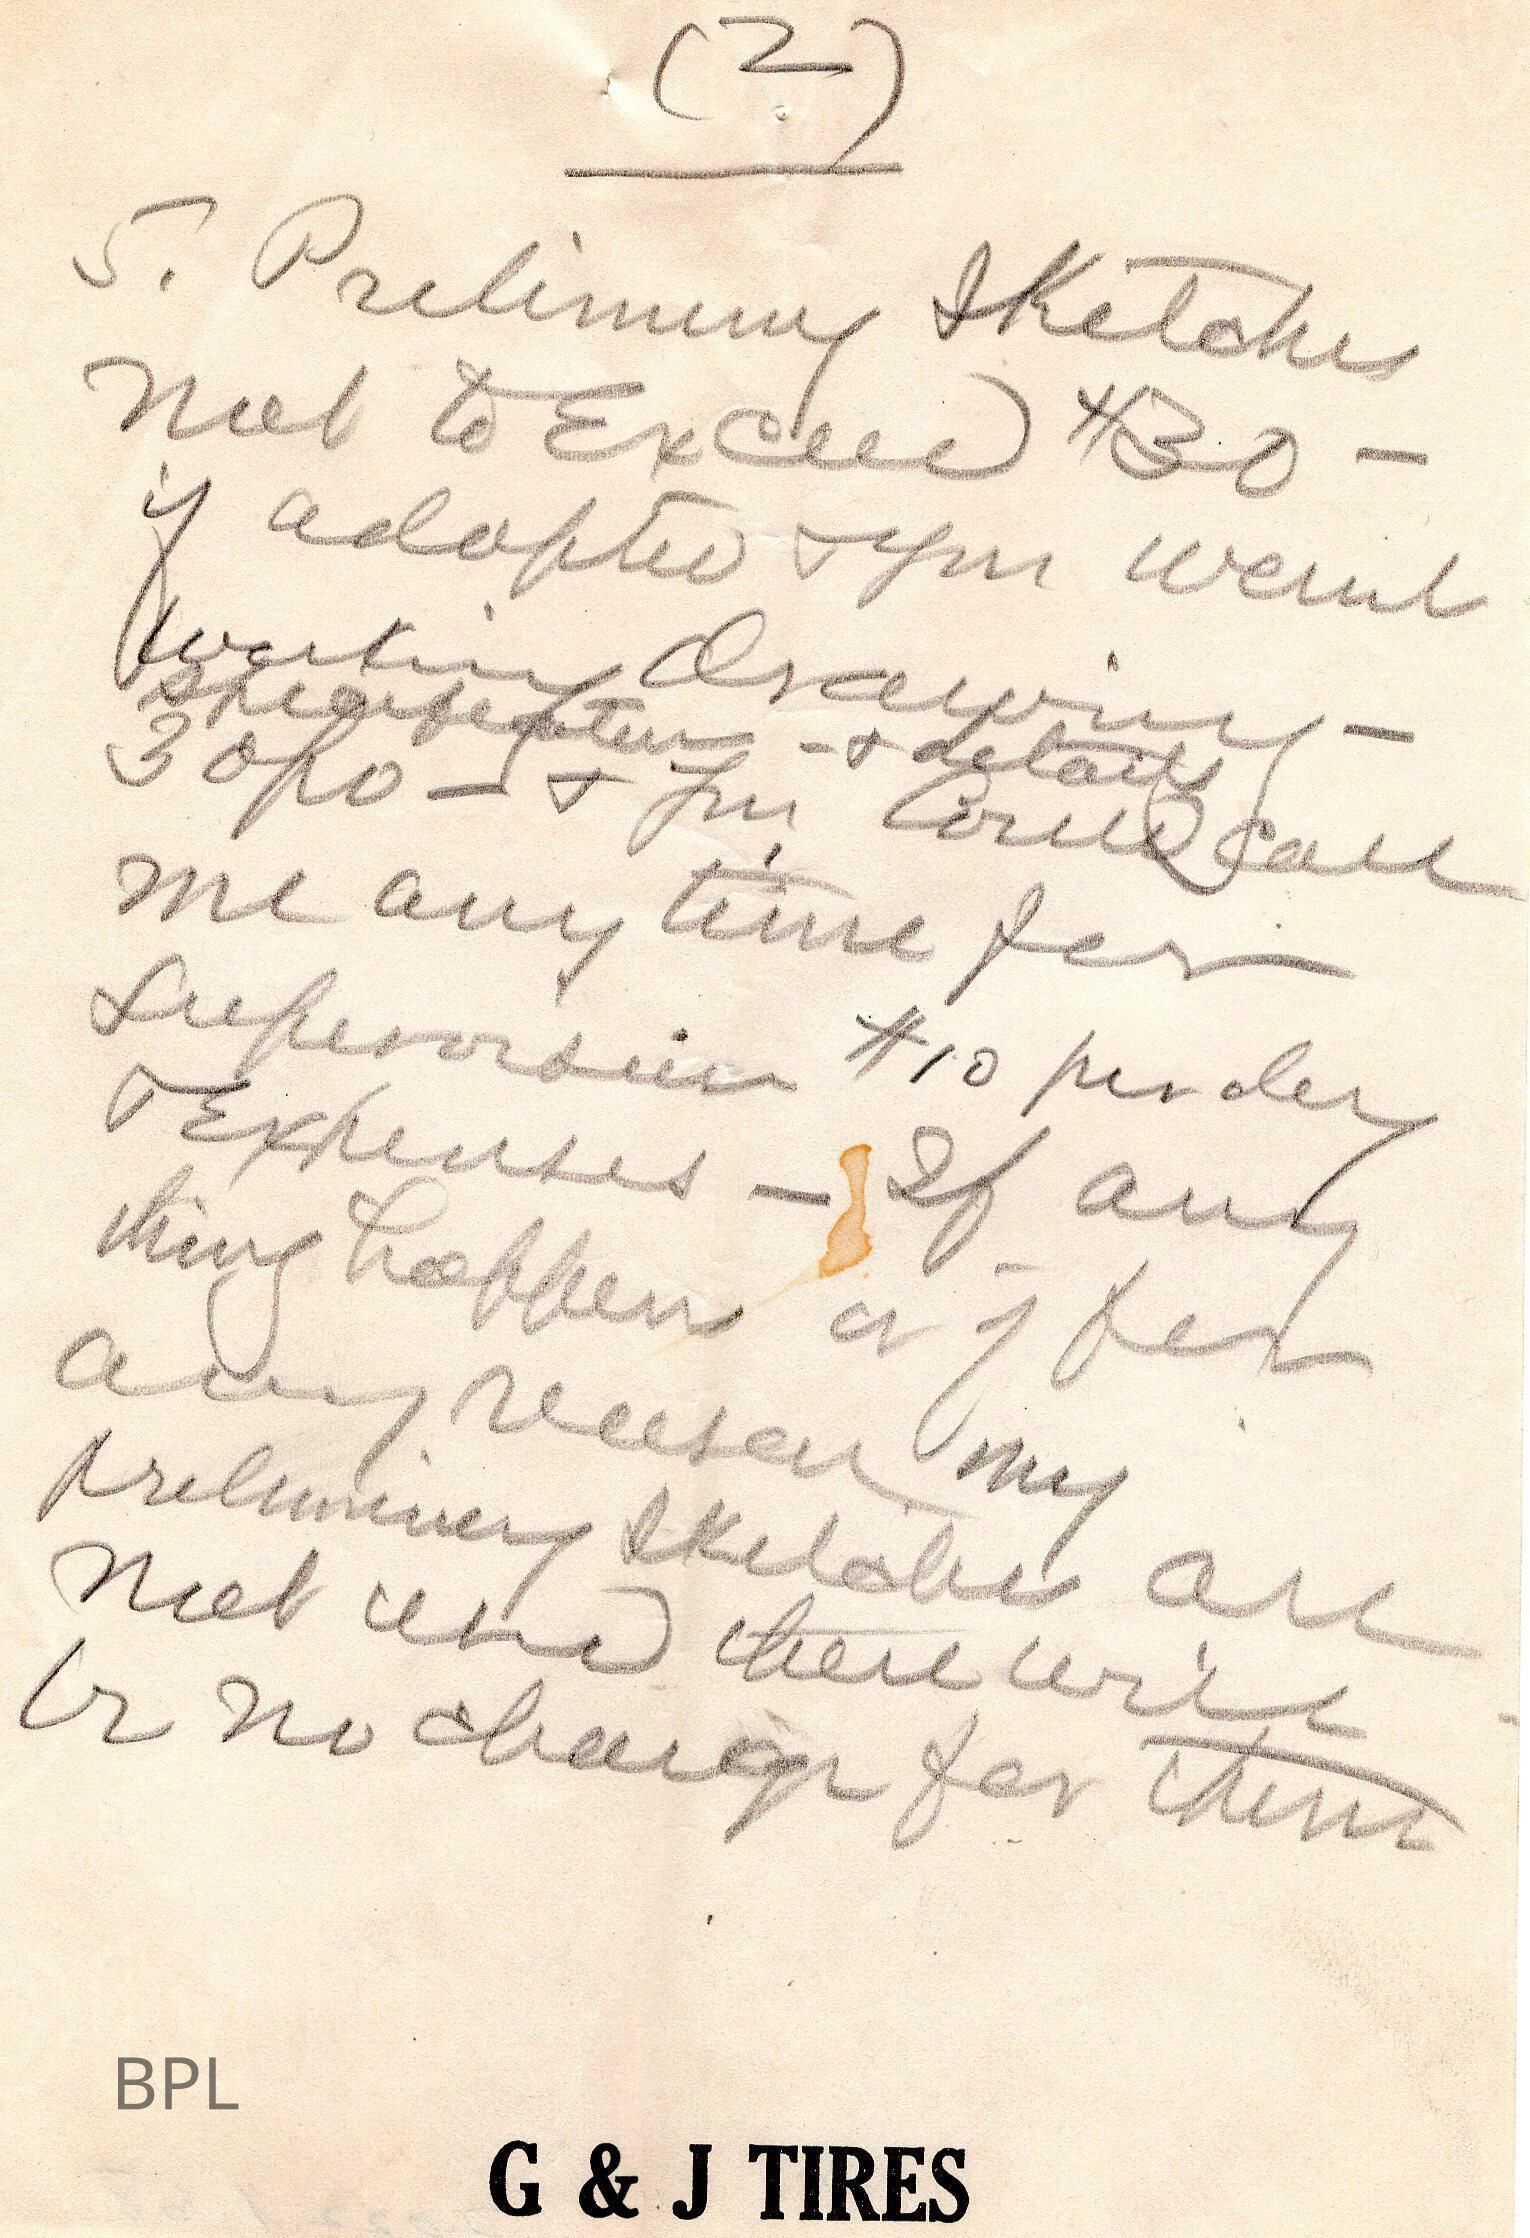 (2)
5. Preliminary Sketches
Not to Exceed $30 —
if adopted & you want
Working Drawing —
& specification - & details
3 0/0 — & you could call
me any time for
Supervision $10 per day
& Expenses — If any
thing happens or if for
any reason my
preliminary sketches are
not used there will
be no charge for them
BPL
G & J TIRES